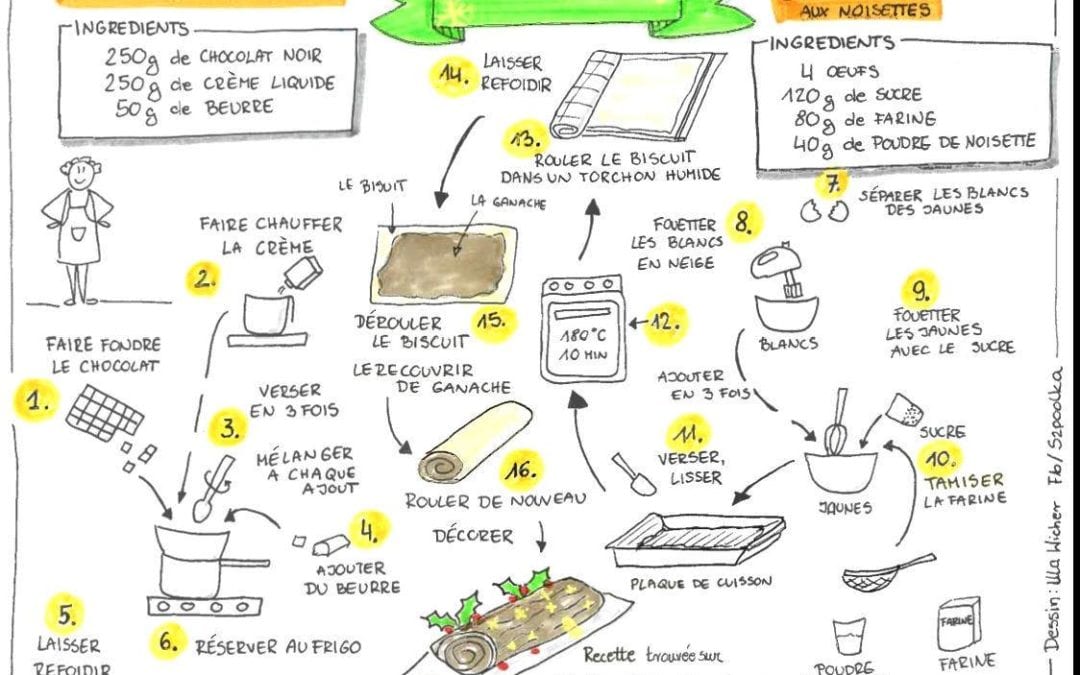 INGREDIENTS
250g de CHOCOLAT NOIR
250g de CRÈME LIQUIDE
50g de BEURRE
AUX NOISETTES
INGREDIENTS
4 OEUFS
120g de SUCRE
80g de FARINE
40g de POUDRE DE NOISETTE
1.
FAIRE FONDRE
LE CHOCOLAT
2.
FAIRE CHAUFFER
LA CRÈME
3.
VERSER
EN 3 FOIS
MÉLANGER
A CHAQUE
AJOUT
4.
AJOUTER
DU BEURRE
5.
LAISSER
REFOIDIR
6. RÉSERVER AU FRIGO
7.
SÉPARER LES BLANCS
DES JAUNES
8.
FOUETTER
LES BLANCS
EN NEIGE
BLANCS
9.
FOUETTER
LES JAUNES
AVEC LE SUCRE
AJOUTER
EN 3 FOIS
SUCRE
JAUNES
10.
TAMISER
LA FARINE
POUDRE
FARINE
FARINE
11.
VERSER,
LISSER
PLAQUE DE CUISSON
12.
180°C
10 MIN
13.
ROULER LE BISCUIT
DANS UN TORCHON HUMIDE
14.
LAISSER
REFOIDIR
LE BISUIT
LA GANACHE
15.
DÉROULER
LE BISCUIT
LE RECOUVRIR
DE GANACHE
16.
ROULER DE NOUVEAU
DÉCORER
Recette trouvée sur
Dessin: Ula Wicher Fb/ Szpoolka